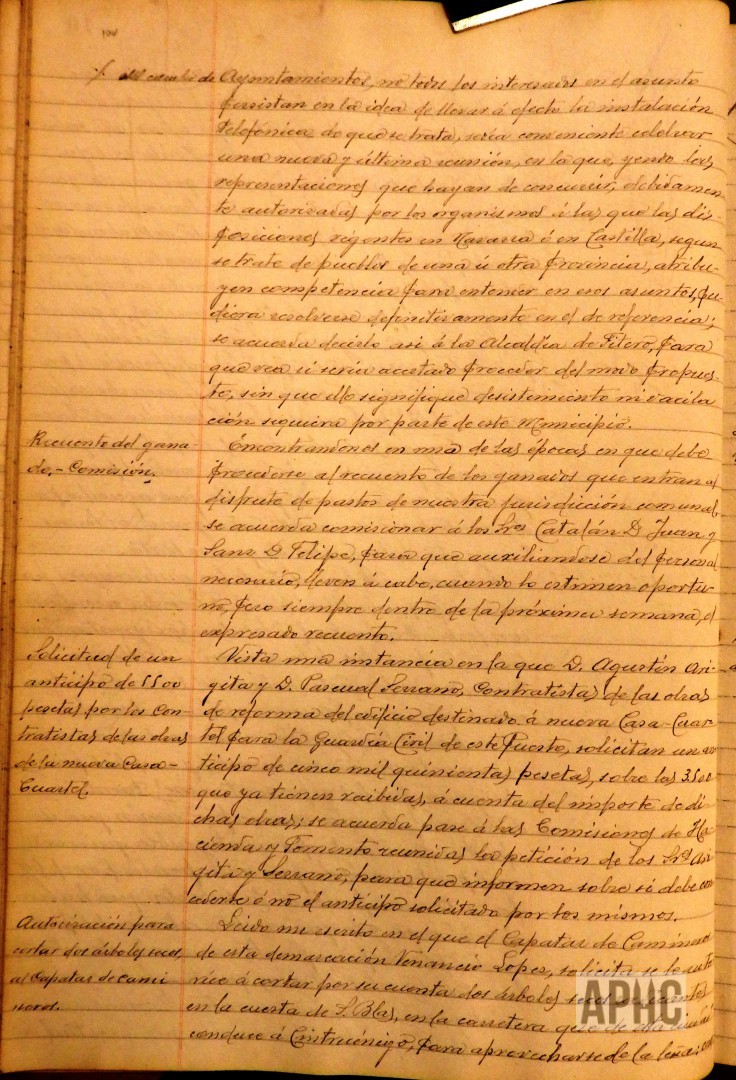 del cambio de Ayuntamientos, no todos los interesados en el asunto
persistan en la idea de llevar á efecto la instalación
telefónica de que se trata, sería conveniente celebrar
una nueva y última reunión, en la que, yendo las
representaciones que hayan de concurrir, debidamen-
te autorizadas por los organismos á los que las dis-
posiciones vigentes en Navarra ó en Castilla, segun
se trate de pueblos de una ú otra provincia, atribu-
yen competencia para entender en esos asuntos, pu-
diera resolverse definitivamente en el de referencia;
se acuerda decirlo asi á la Alcaldía de Fitero, para
que vea si sería acertado proceder del modo propues-
to, sin que ello signifique desistimiento ni vacila
ción siquiera por parte de este Municipio.
Recuento del gana-
do.- Comisión.
Encontrandonos en una de las épocas en que debe
procederse al recuento de los ganados que entran al
disfrute de pastos de nuestra jurisdicción comunal,
se acuerda comisionar á los Sres Catalán D. Juan y
Sanz D. Felipe, para que auxiliandose del personal
necesario, lleven á cabo, cuando lo estimen oportu-
no, pero siempre dentro de la próxima semana, el
expresado recuento.
Solicitud de un
anticipo de 5500
pesetas por los Con-
tratistas de las obras
de la nueva Casa-
Cuartel.
Vista una instancia en la que D. Agustín Ari-
gita y D. Pascual Serrano, Contratistas de las obras
de reforma del edificio destinado á nueva Casa-Cuar-
tel para la Guardia Civil de este Puesto, solicitan un an-
ticipo de cinco mil quinientas pesetas, sobre las 3500
que ya tienen recibidas, á cuenta del importe de di-
chas obras; se acuerda pase á las Comisiones de Ha-
cienda y Fomento reunidas la petición de los Sres Ari-
gita y Serrano, para que informen sobre si debe con
cederse ó nó el anticipo solicitado por los mismos.
Autorización para
cortar dos árboles secos,
al Capataz de cami
neros.
Leido un escrito en el que el Capataz de Camineros
de esta demarcación Venancio Lopez, solicita se le auto
rice á cortar por su cuenta dos árboles secos
en la cuesta de S. Blas, en la carretera que de esta ciudad
conduce á Cintruénigo, para aprovecharse de la leña;
APHC